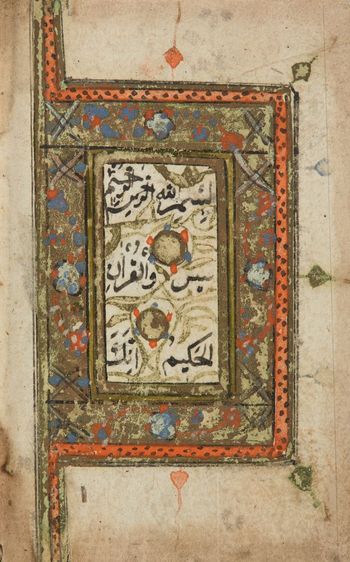 بسم الله الرحمن الرحيم
يس والقران
الحكيم انك